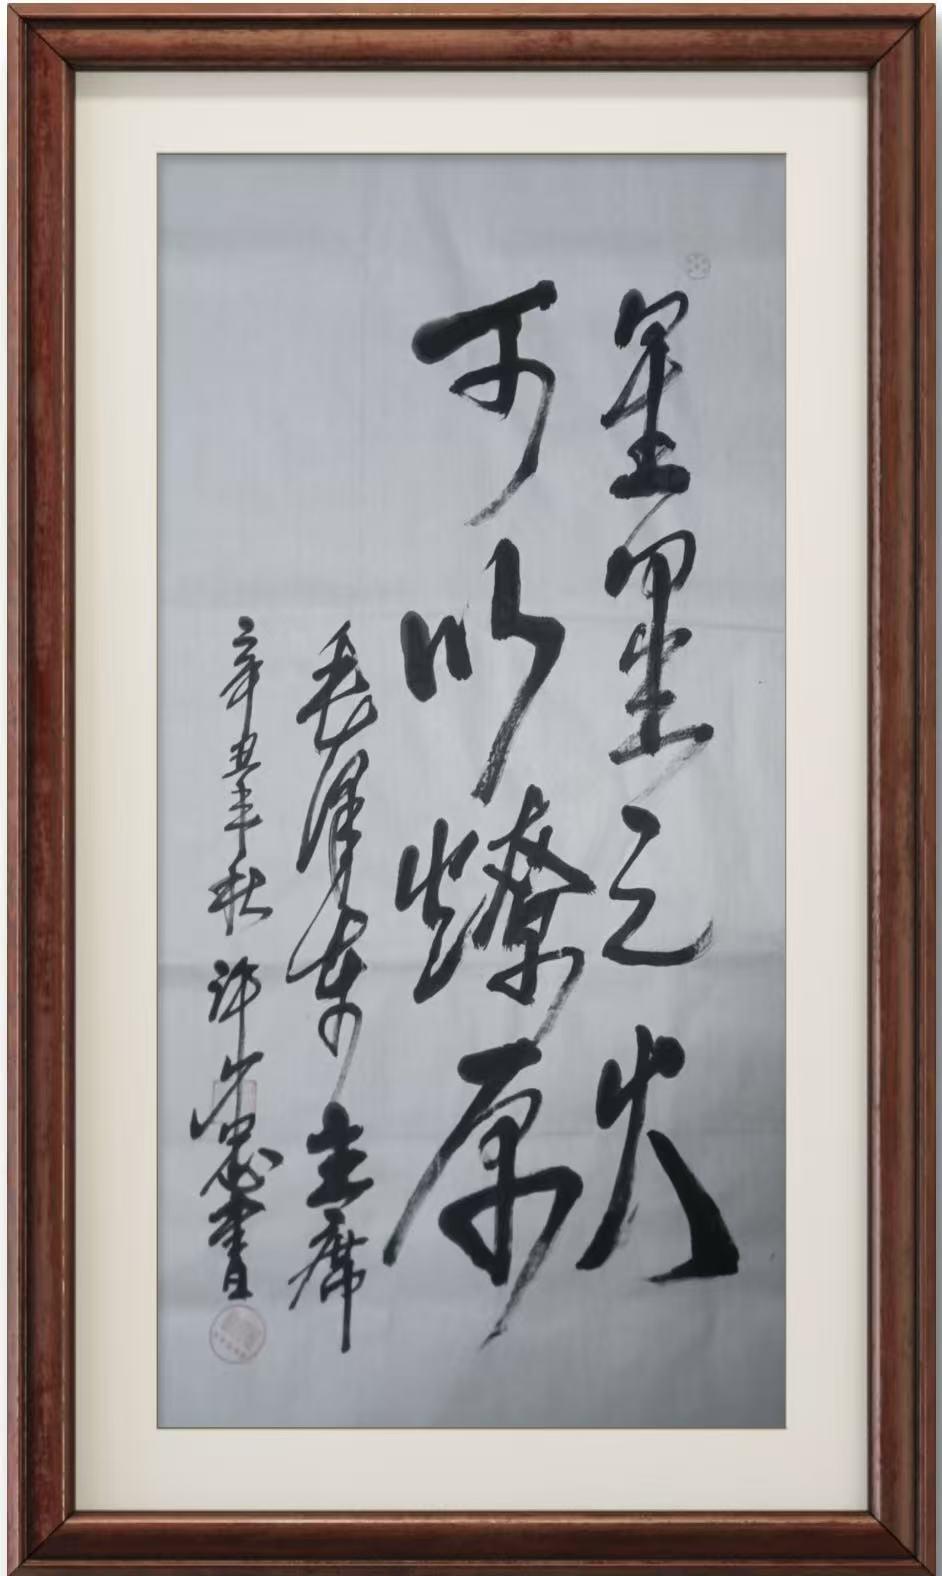 星星之火
可以燎原
毛泽东主席
辛丑年秋 许崇忠书